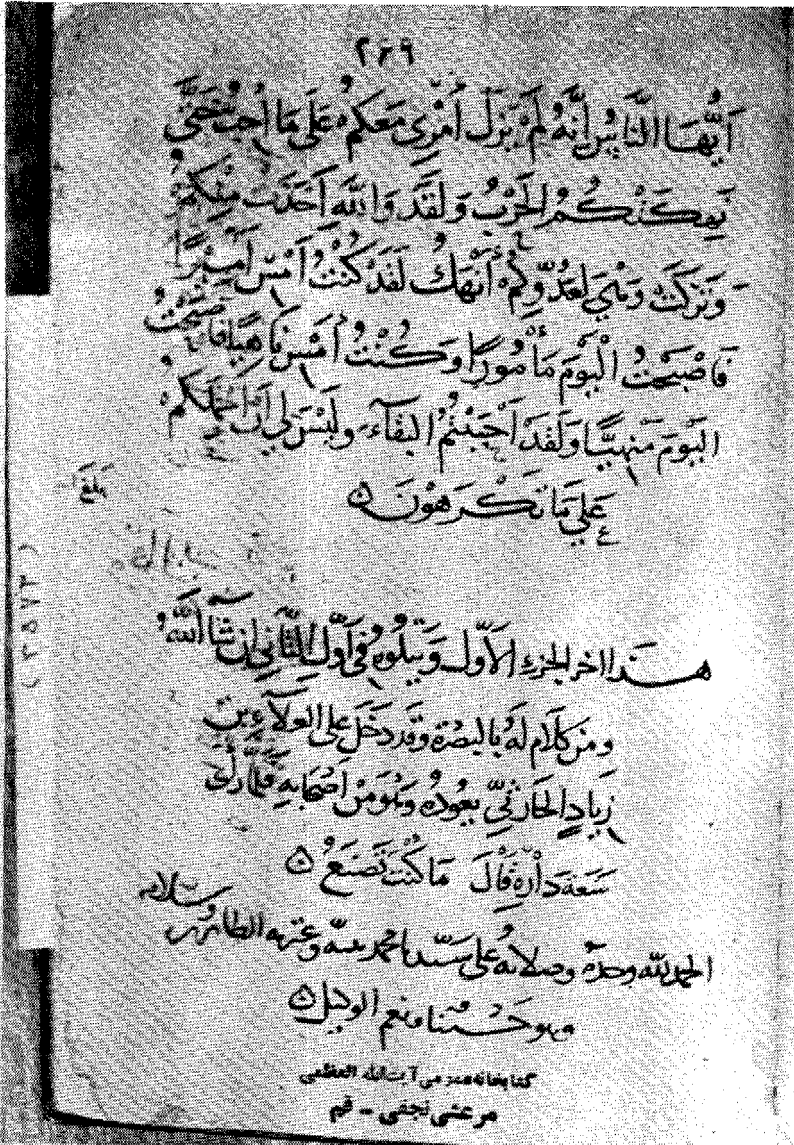 ٢٦٩
أَيُّهَا النَّاسُ إِنَّهُ لَمْ يَزَلْ أَمْرِي مَعَكُمْ عَلَى مَا أُحِبُّ حَتَّى
نَهِكَتْكُمُ الْحَرْبُ وَلَقَدْ وَاللَّهِ أَخَذَتْ مِنْكُمْ
وَتَرَكَتْ وَهِيَ لِعَدُوِّكُمْ أَنْهَكُ لَقَدْ كُنْتُ أَمْسِ أَمِيرًا
فَأَصْبَحْتُ الْيَوْمَ مَأْمُورًا وَكُنْتُ أَمْسِ نَاهِيًا فَأَصْبَحْتُ
الْيَوْمَ مَنْهِيًّا وَلَقَدْ أَحْبَبْتُمُ الْبَقَاءَ وَلَيْسَ لِي أَنْ أَحْمِلَكُمْ
عَلَى مَا تَكْرَهُونَ
بلغ
هذا اخر الجزء الأوّل وَيتلوهُ في أوّل الثّاني إن شا اللّه
ومن كلام لَهُ بالبصرة وقد دَخَلَ على العَلَاءِ بن
زيادٍ الحَارثيِّ يعودُهُ وهُوَ مِنْ أصحَابِهِ فلمّا رَأى
سَعَةَ دَارِهِ قَالَ مَا كُنْتَ تَصْنَعُ
الحمد لله وحده وصلاته على سيدنا محمد نبيه وعترته الطاهرين وسلامه
وهو حسبنا ونعم الوكيل
كتابخانه عمومی آیت‌الله العظمی
مرعشی نجفی - قم
( ٣٨٧٣ )